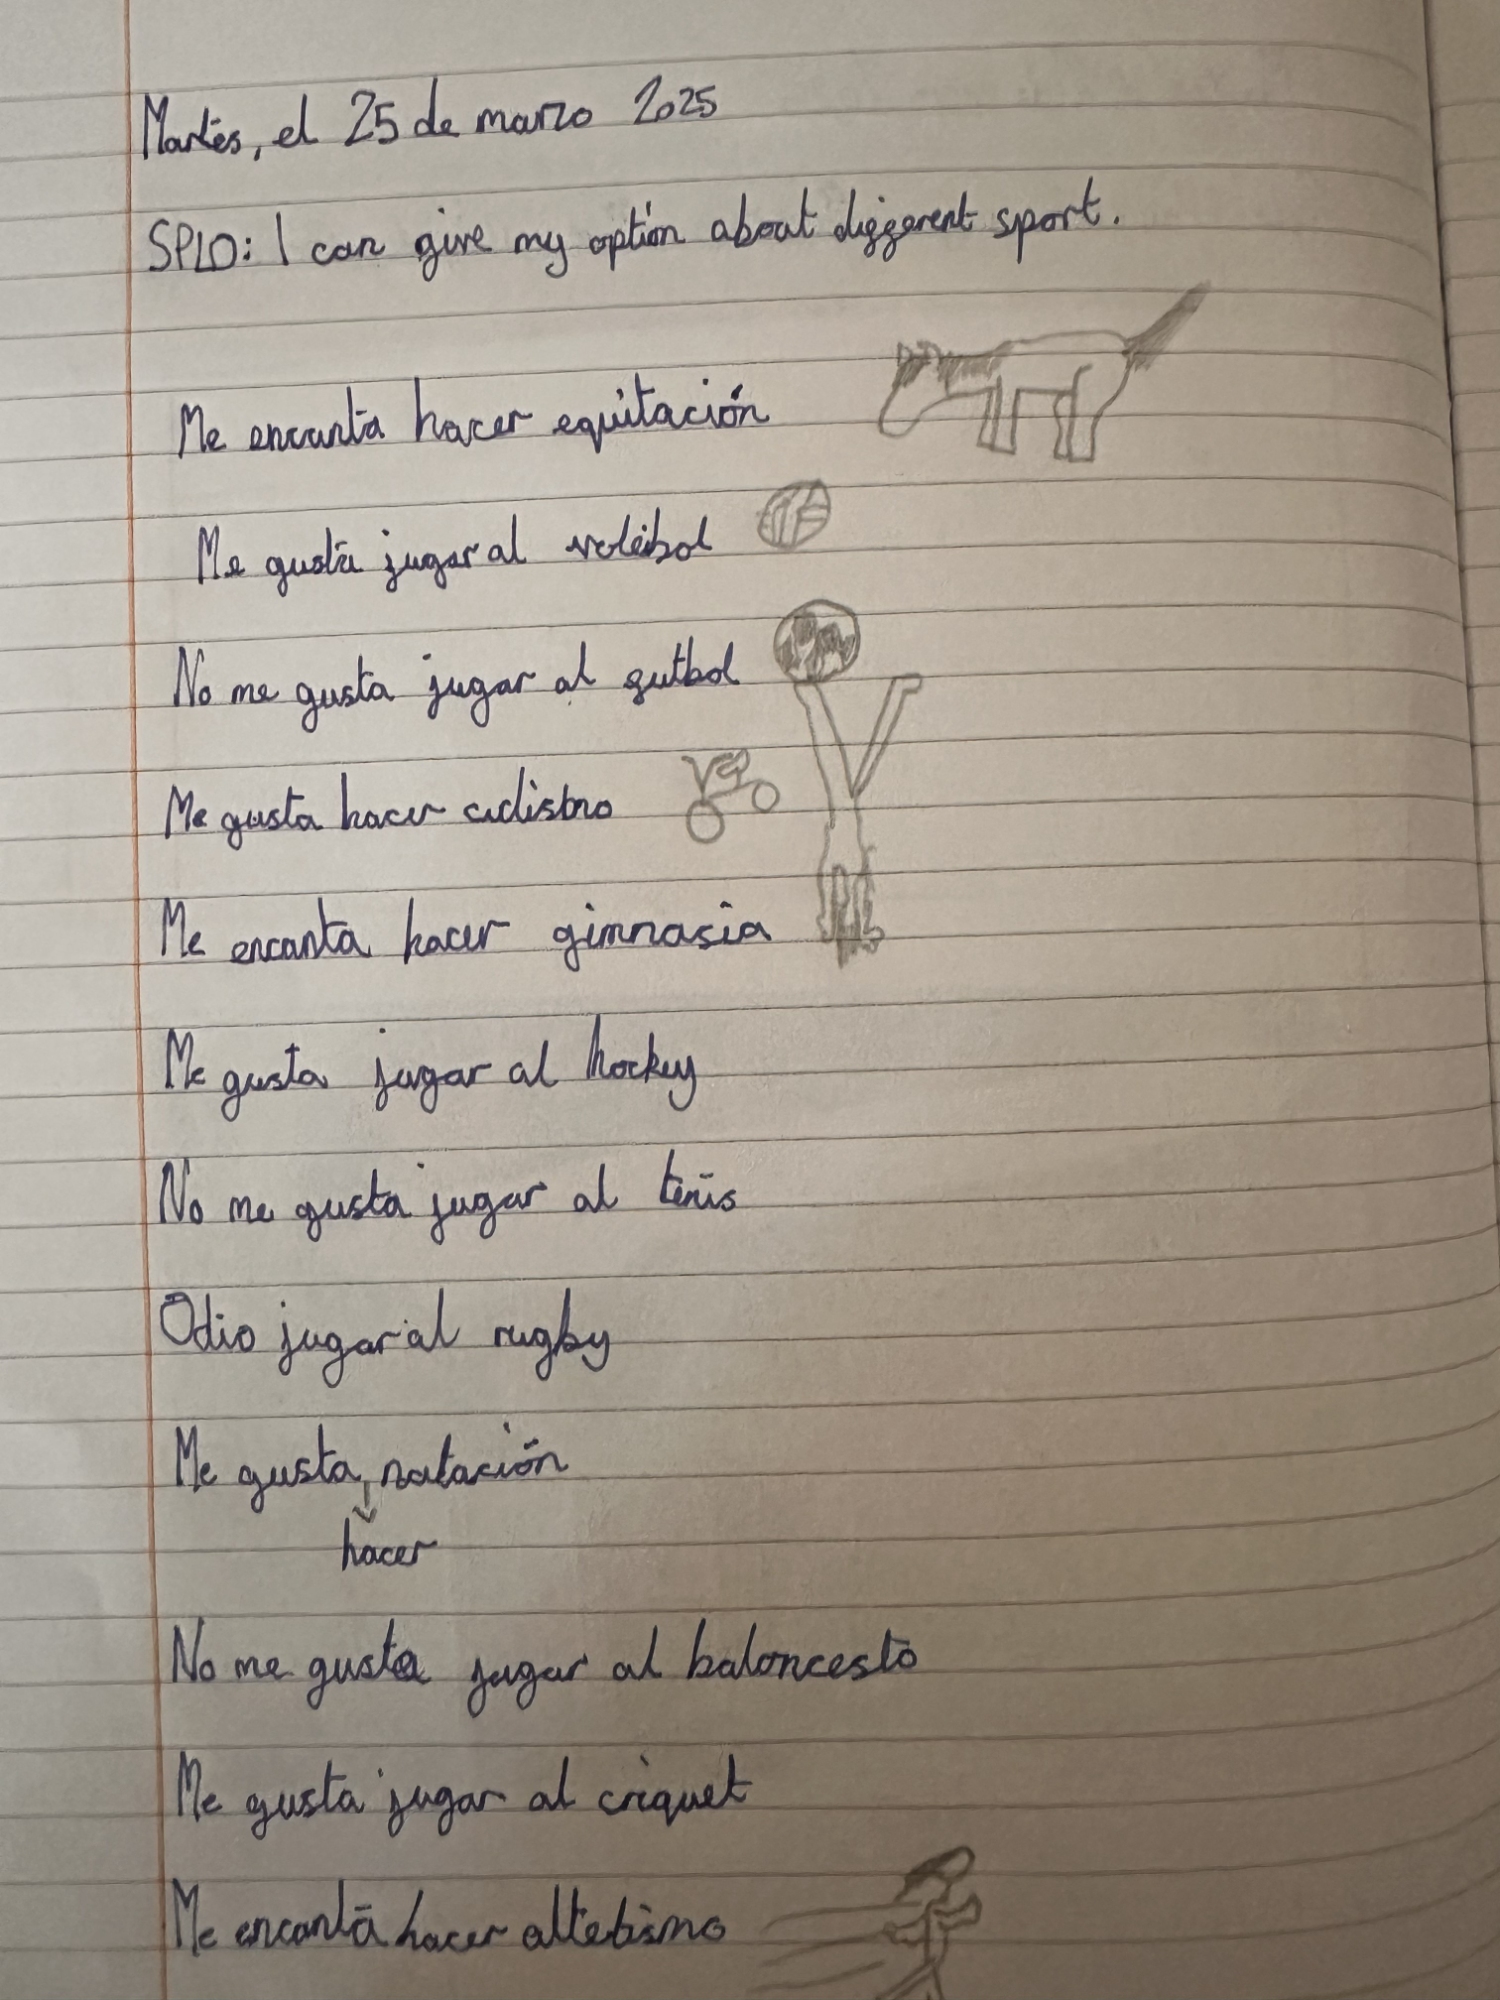 Martes, el 25 de marzo 2025
SPLO: I can give my option about different sport.
Me encanta hacer equitación
Me gusta jugar al voleibol
No me gusta jugar al futbol
Me gusta hacer ciclismo
Me encanta hacer gimnasia
Me gusta jugar al hockey
No me gusta jugar al tenis
Odio jugar al rugby
Me gusta natación
hacer
No me gusta jugar al baloncesto
Me gusta jugar al criquet
Me encanta hacer altetismo